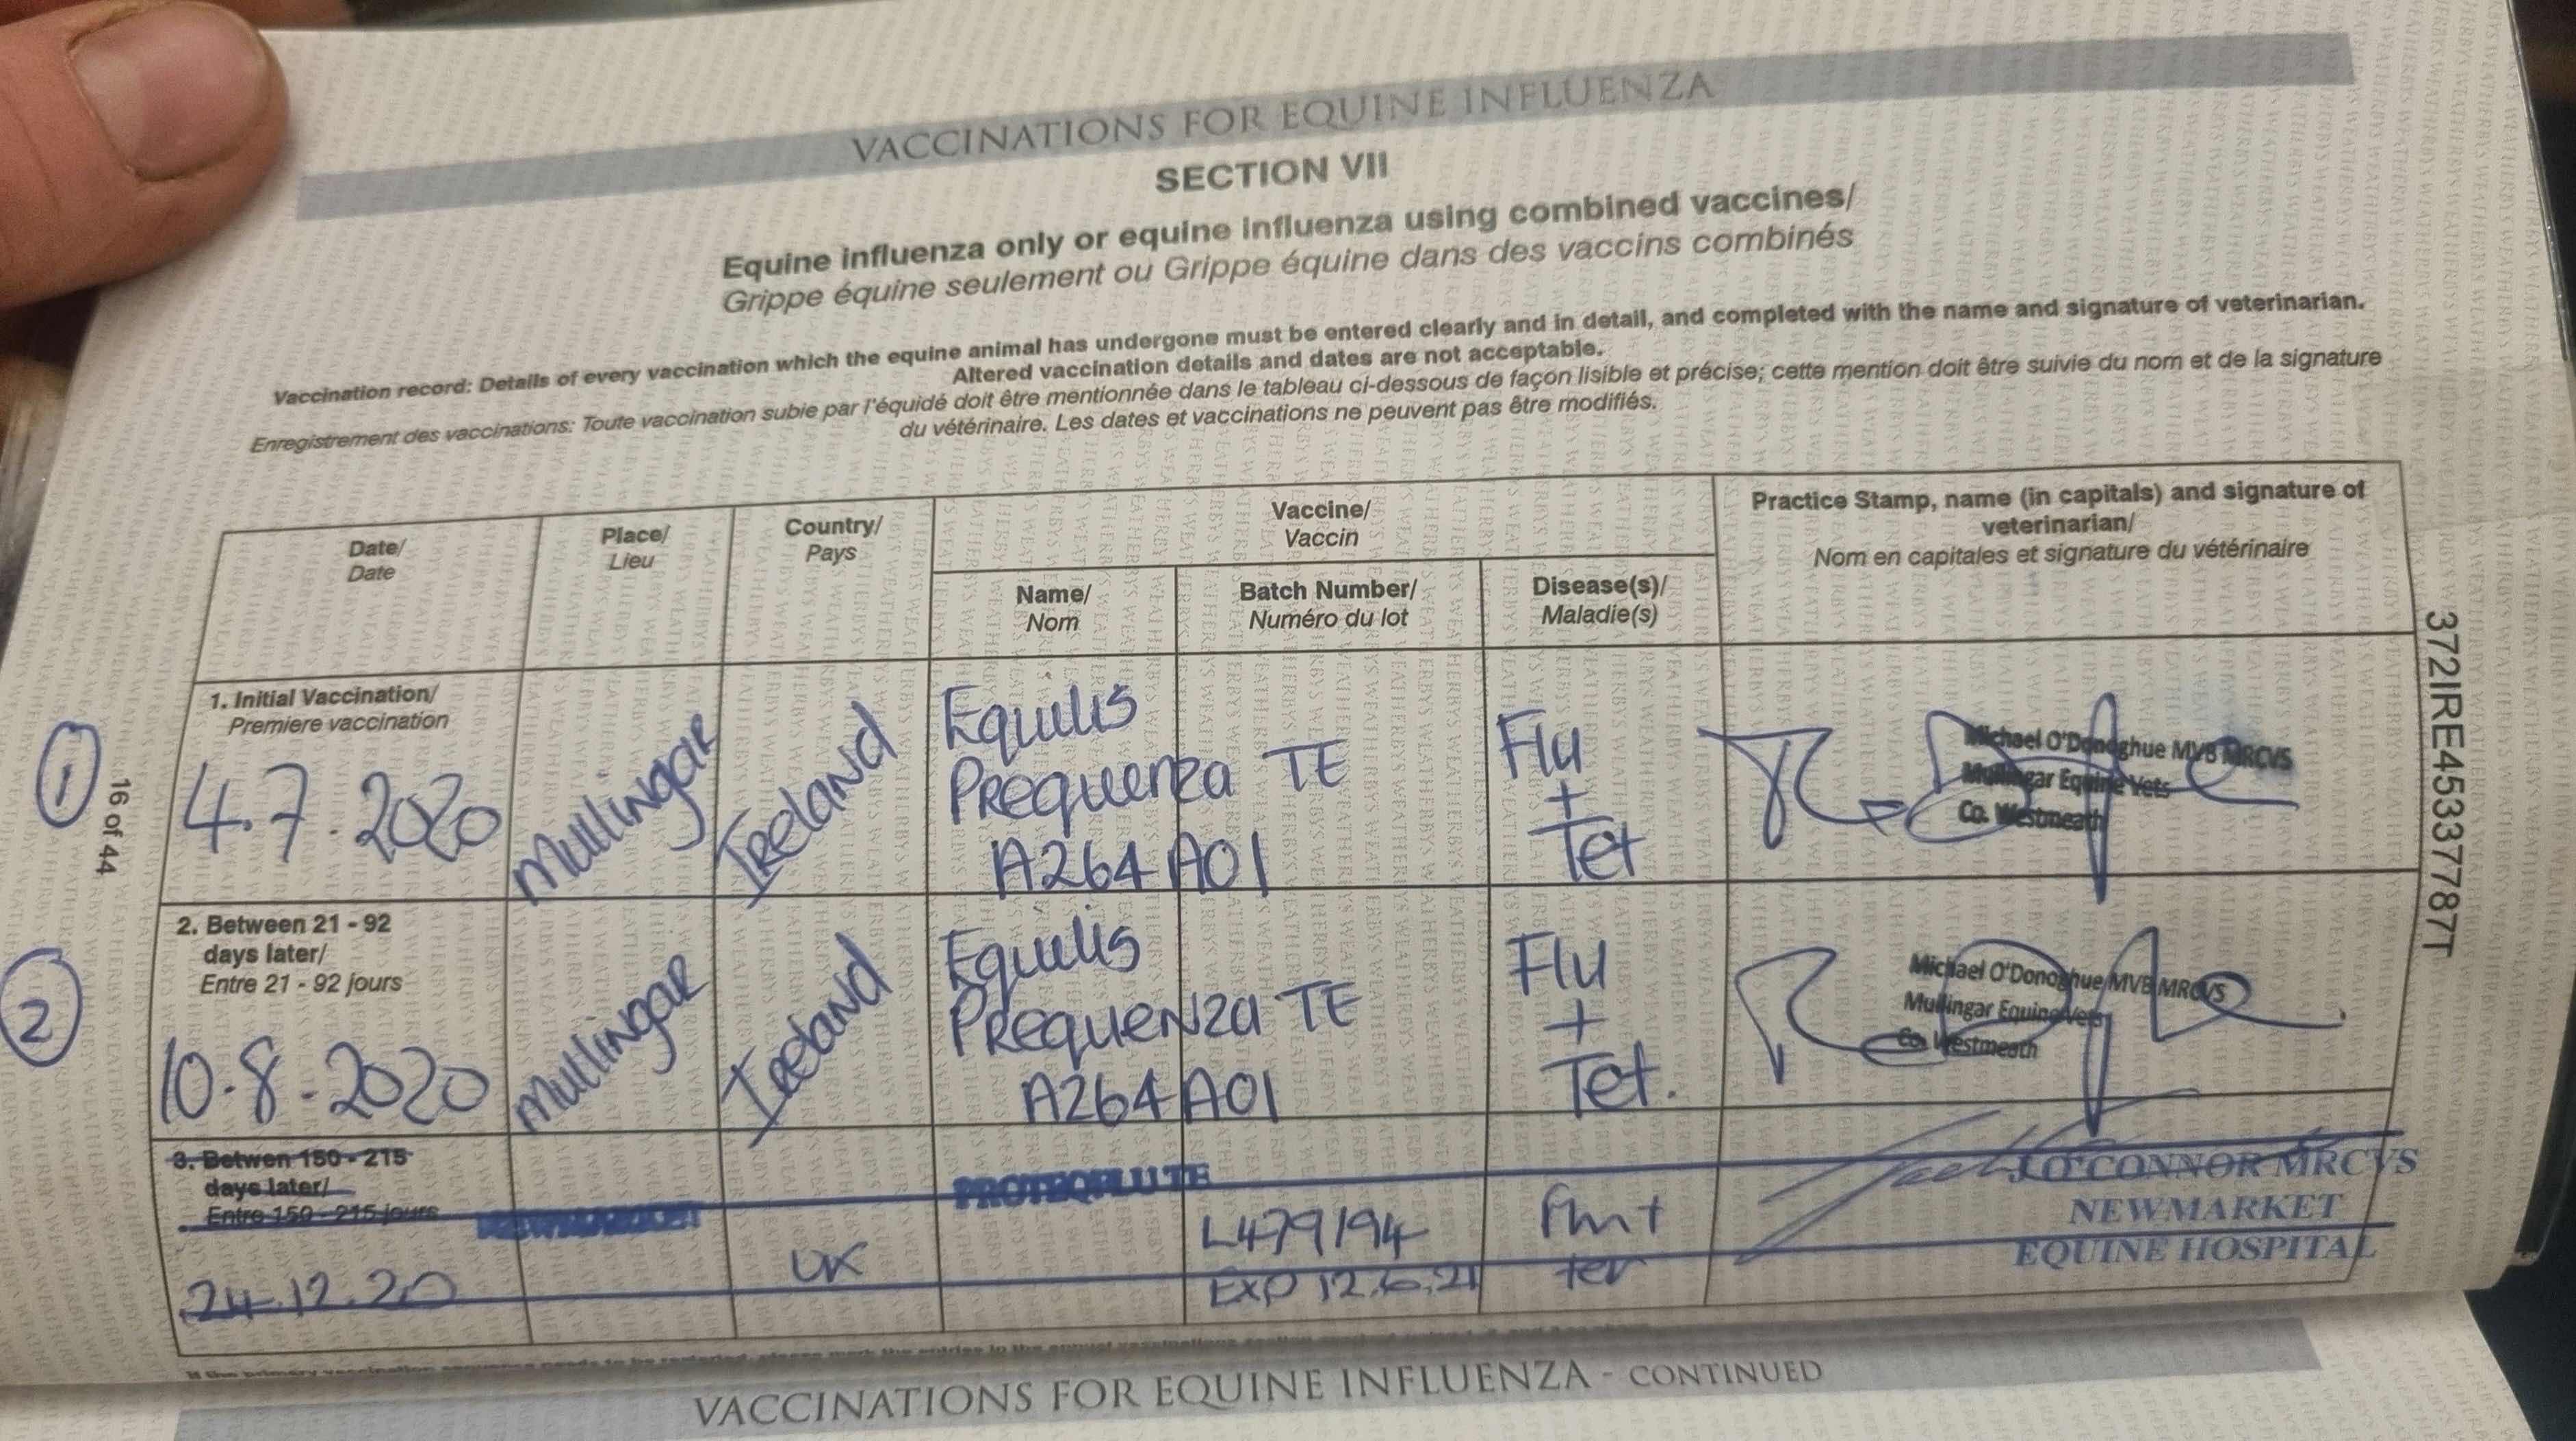 VACCINATIONS FOR EQUINE INFLUENZA
SECTION VII
Equine influenza only or equine influenza using combined vaccines/
Grippe équine seulement ou Grippe équine dans des vaccins combinés
Vaccination record: Details of every vaccination which the equine animal has undergone must be entered clearly and in detail, and completed with the name and signature of veterinarian.
Altered vaccination details and dates are not acceptable.
Enregistrement des vaccinations: Toute vaccination subie par l'équidé doit être mentionnée dans le tableau ci-dessous de façon lisible et précise; cette mention doit être suivie du nom et de la signature
du vétérinaire. Les dates et vaccinations ne peuvent pas être modifiés.
Date/
Date
Place/
Lieu
Country/
Pays
Vaccine/
Vaccin
Name/
Nom
Batch Number/
Numéro du lot
Disease(s)/
Maladie(s)
Practice Stamp, name (in capitals) and signature of
veterinarian/
Nom en capitales et signature du vétérinaire
1
1. Initial Vaccination/
Premiere vaccination
4.7.2020
Mullingar
Ireland
Equilis
Prequenza TE
A264A01
Flu
+
Tet
Michael O'Donoghue MVB MRCVS
Mullingar Equine Vets
Co. Westmeath
2
2. Between 21 - 92
days later/
Entre 21 - 92 jours
10.8.2020
Mullingar
Ireland
Equilis
Prequenza TE
A264A01
Flu
+
Tet.
Michael O'Donoghue MVB MRCVS
Mullingar Equine Vets
Co. Westmeath
3. Betwen 150 - 215
days later/
Entre 150 - 215 jours
24.12.20
NEWMARKET
UK
PROTEQFLU TE
L479194
EXP 12.6.21
J O'CONNOR MRCVS
NEWMARKET
EQUINE HOSPITAL
16 of 44
372IRE45337787T
VACCINATIONS FOR EQUINE INFLUENZA - CONTINUED